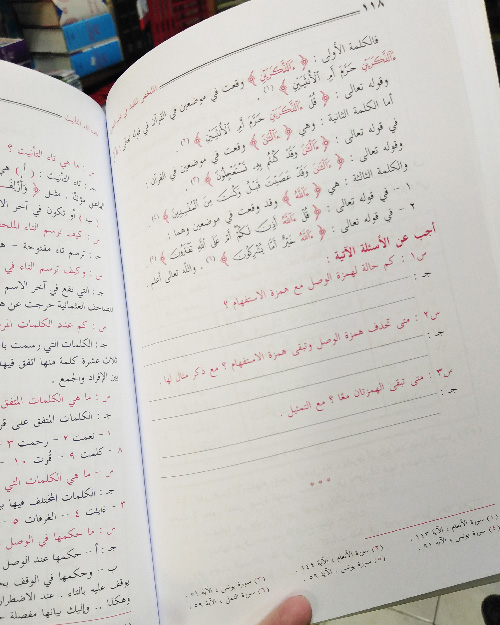 ١١٨
فالكلمة الأولى : ﴿ ءَآلذَّكَرَيْنِ ﴾ وقعت في موضعين في القرآن في قوله تعالى : ﴿ قُلْ
ءَآلذَّكَرَيْنِ حَرَّمَ أَمِ الْأُنثَيَيْنِ ﴾ (١) .
وقوله تعالى : ﴿ قُلْ ءَآلذَّكَرَيْنِ حَرَّمَ أَمِ الْأُنثَيَيْنِ ﴾ (٢) .
أما الكلمة الثانية : وهي ﴿ ءَآلْـَٰٔنَ ﴾ وقعت في موضعين في القرآن .
في قوله تعالى : ﴿ ءَآلْـَٰٔنَ وَقَدْ كُنتُم بِهِۦ تَسْتَعْجِلُونَ ﴾ (٣) .
وقوله تعالى : ﴿ ءَآلْـَٰٔنَ وَقَدْ عَصَيْتَ قَبْلُ وَكُنتَ مِنَ الْمُفْسِدِينَ ﴾ (٤) .
والكلمة الثالثة : هي ﴿ ءَآللَّهُ ﴾ وقد وقعت في موضعين وهما :
١ - في قوله تعالى : ﴿ قُلْ ءَآللَّهُ أَذِنَ لَكُمْ أَمْ عَلَى اللَّهِ تَفْتَرُونَ ﴾ (٥) .
٢ - في قوله تعالى : ﴿ ءَآللَّهُ خَيْرٌ أَمَّا يُشْرِكُونَ ﴾ (٦) . والله تعالى أعلم .
أجب عن الأسئلة الآتية :
س١ : كم حالة لهمزة الوصل مع همزة الاستفهام ؟
جـ :
س٢ : متى تحذف همزة الوصل وتبقى همزة الاستفهام ؟ مع ذكر مثال لها .
جـ :
س٣ : متى تبقى الهمزتان معًا ؟ مع التمثيل .
جـ :
* * *
(١) سورة الأنعام ، الآية ١٤٣ . (٢) سورة الأنعام ، الآية ١٤٤ . (٣) سورة يونس ، الآية ٥١ .
(٤) سورة يونس ، الآية ٩١ . (٥) سورة يونس ، الآية ٥٩ . (٦) سورة النمل ، الآية ٥٩ .
س : ما هي تاء التأنيث ؟
جـ : تاء التأنيث :
س : كيف ترسم التاء
جـ : ترسم تاء مفتوحة
س : وكيف ترسم التاء في
جـ : التي تقع في آخر الاسم
المصاحف العثمانية خرجت عن
س : كم عدد الكلمات
جـ : الكلمات التي رسمت
ثلاث عشرة كلمة منها اتفق
بين الإفراد والجمع .
س : ما هي الكلمات المتفق
جـ : الكلمات المتفق على
١ - نعمت ٢ - رحمت ٣ -
٨ - كلمت ٩ - قرت ١٠ -
س : ما هي الكلمات التي
جـ : الكلمات المختلف فيها
٤ - الغرفات ٥ -
س : ما حكمها في الوصل
جـ : أ - حكمها عند الوصل
ب - وحكمها في الوقف
يوقف عليه بالتاء . عند الاضطرار
وهكذا .. وإليك بيانها مفصلة